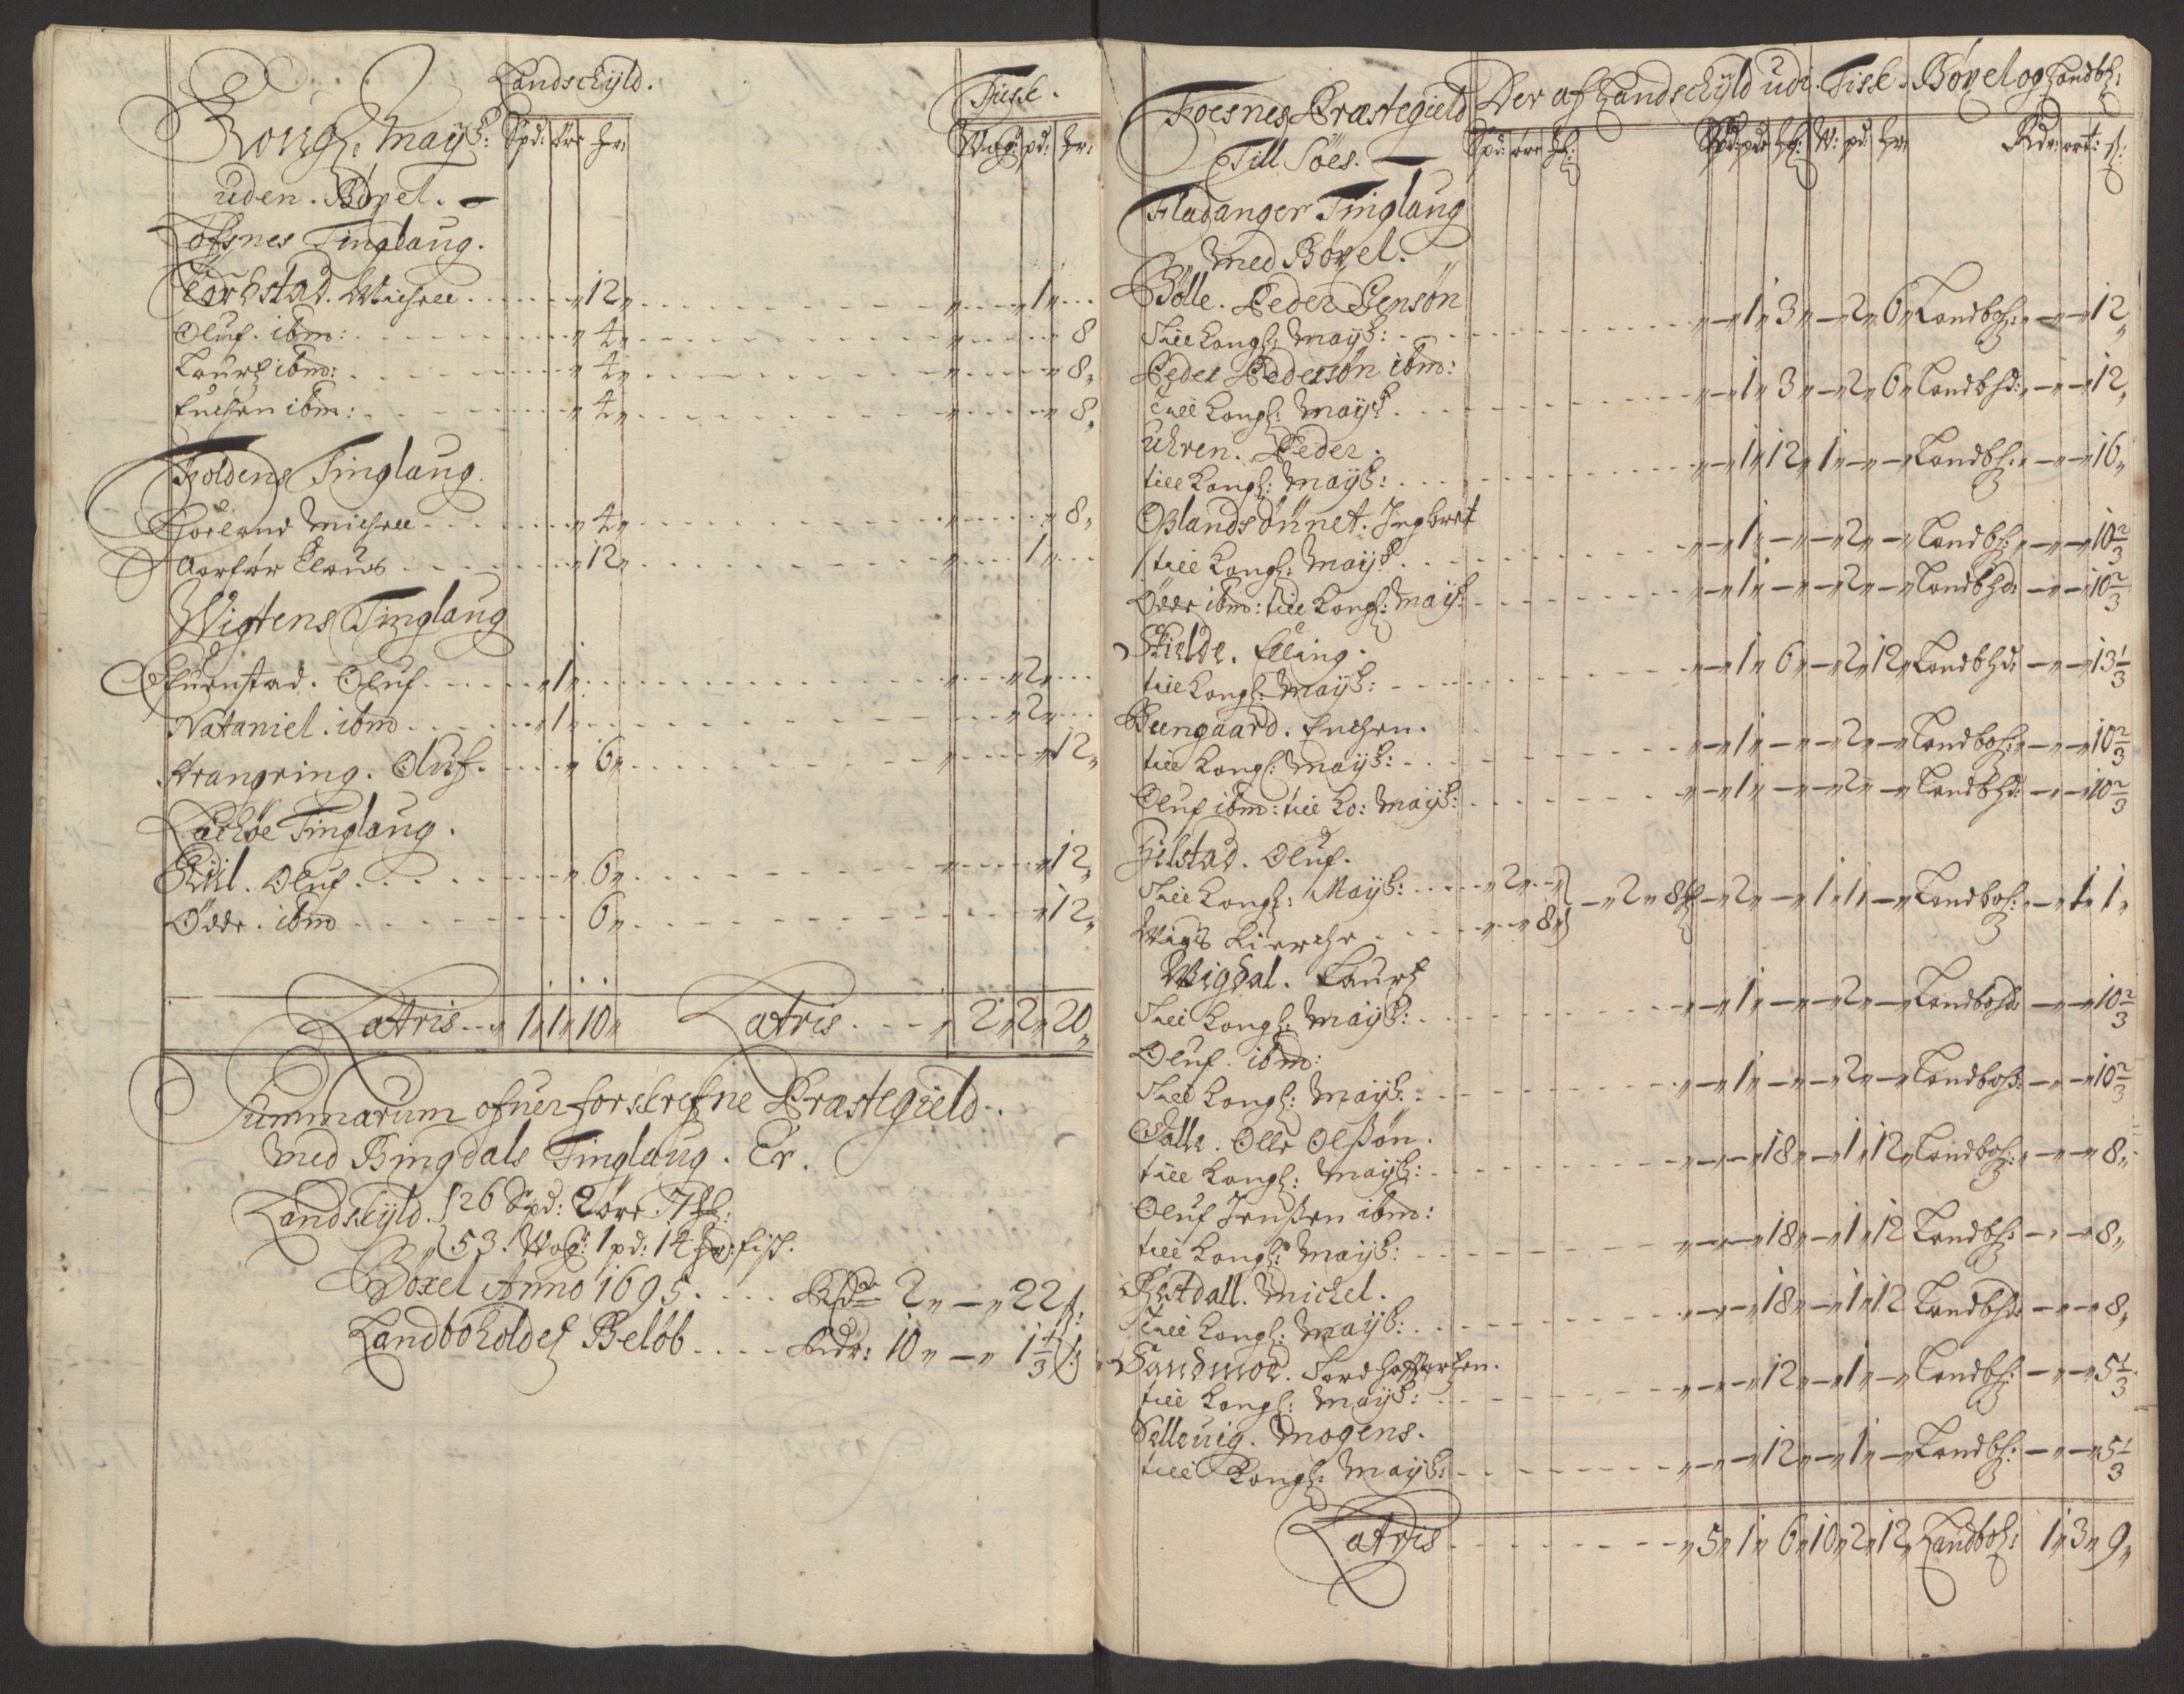 Landschyld. Fiske.
Kongl: Mayts: Spd: øre hr: Wog: pd: hr:
uden. Böxel. —
Föfsnes Tinglaug.
Torbstad. Michell 12 1
Oluf. ibm: 4 8
Lauritz ibm: 4 8
Enchen ibm: 4 8
Foldens Tinglaug.
Michell 4 8
Aarfor Claus 12 1
Wigtens Tinglaug
Oluf 1 2
Nataniel. ibm 1 2
Strangring. Oluf. 6 12
Lechöe Tinglaug.
Kiil. Oluf 6 12
Odde. ibm 6 12
Latris 1 1 10 Latris 2 2 20
Summarum ofuer forskrefne Præstegield.
med Bingdals Tinglaug. Er.
Landskyld. 26 Spd: 2 öre 7 hl:
53. Wog: 1 pd: 14 hr: fisk.
Böxel Anno 1695 Rdr 2 — 22 s:
Landboholdes Beløb Rdr: 10 — 1 1/3 s:
Foesnes Præstegield Der af Landschyld udi. Fisk. Böxel og Landbh:
Till Söes. — Spd: øre hl: Spd: pd: hl: W: pd: hr: Rdr: ort: s:
Fladanger Tinglaug
med Böxel.
Bölle. Peder Jensön
Till Kongl: Mayts: 1 3 2 6 Landboh: 12
Peder Pedersön ibm:
Till Kongl: Mayts 1 3 2 6 Landbhd: 12
Uhren. Peder.
till Kongl: Mayts: 1 12 1 Landbh: 16
Oslandsdünet. Ingbret
till Kongl: Mayts 1 2 Landbh: 10 2/3
Odde ibm: till Kongl: Mayts: 1 2 Landbhd: 10 2/3
Skielde. Elling.
till Kongl: Mayts: 1 6 2 12 Landbhd: 13 1/3
Beengaard. Enchen.
till Kongl: Mayts: 1 2 Landboh: 10 2/3
Oluf ibm: till Ko: Mayts: 1 2 Landbhd: 10 2/3
Hilstad. Oluf.
Till Kongl: Mayts: 2 2 8 2 1 1 Landboh: 1 1
Kierche 8
Wigdal. Lauritz
Till Kongl: Mayts: 1 2 Landbohd: 10 2/3
Oluf. ibm:
Till Kongl: Mayts: 1 2 Landbohd: 10 2/3
Olle Olssön.
till Kongl: Mayts: 18 1 12 Landboh: 8
Oluf Jenssen ibm:
till Kongl: Mayts: 18 1 12 Landbh: 8
Michel.
Till Kongl: Mayts: 18 1 12 Landbhd: 8
Sandmoe.
till Kongl: Mayts: 12 1 Landbh: 5 1/3
Selleuig. Mogens.
till Kongl: Mayts: 12 1 Landbh: 5 1/3
Latris 5 1 6 10 2 12 Landboh: 1 3 9